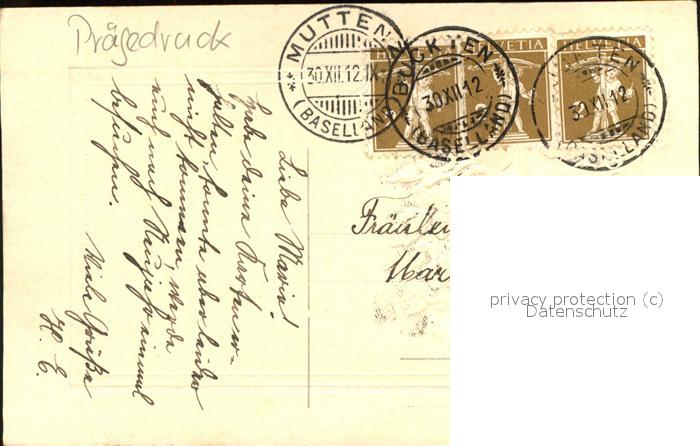 Prägedruck
MUTTENZ
30.XII.12.IX
(BASELLAND)
BUCKTEN
30.XII.12
(BASELLAND)
HELVETIA
HELVETIA
BUCKTEN
30.XII.12
(BASELLAND)
Liebe Maria!
Habe deine Karte er-
halten, konnte aber leider
nicht kommen, werde
nach Neujahr einmal
besuchen.
Viele Grüße
H. E.
Fräulein
Mar
privacy protection (c)
Datenschutz